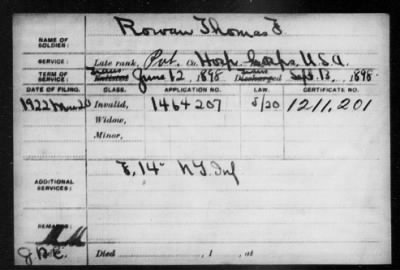 NAME OF SOLDIER: Rowan Thomas F
SERVICE: Late rank, Pvt. Co. Hosp. Corps, U.S.A
TERM OF SERVICE: Trans Enlisted June 12, 1898. Trans Discharged Sept. 13, 1898.
DATE OF FILING. CLASS. APPLICATION NO. LAW. CERTIFICATE NO.
1922 Invalid, 1464207 5/20 1211.201
Widow,
Minor,
ADDITIONAL SERVICES: F, 14" N.Y. Inf
REMARKS:
Died , 1 , at